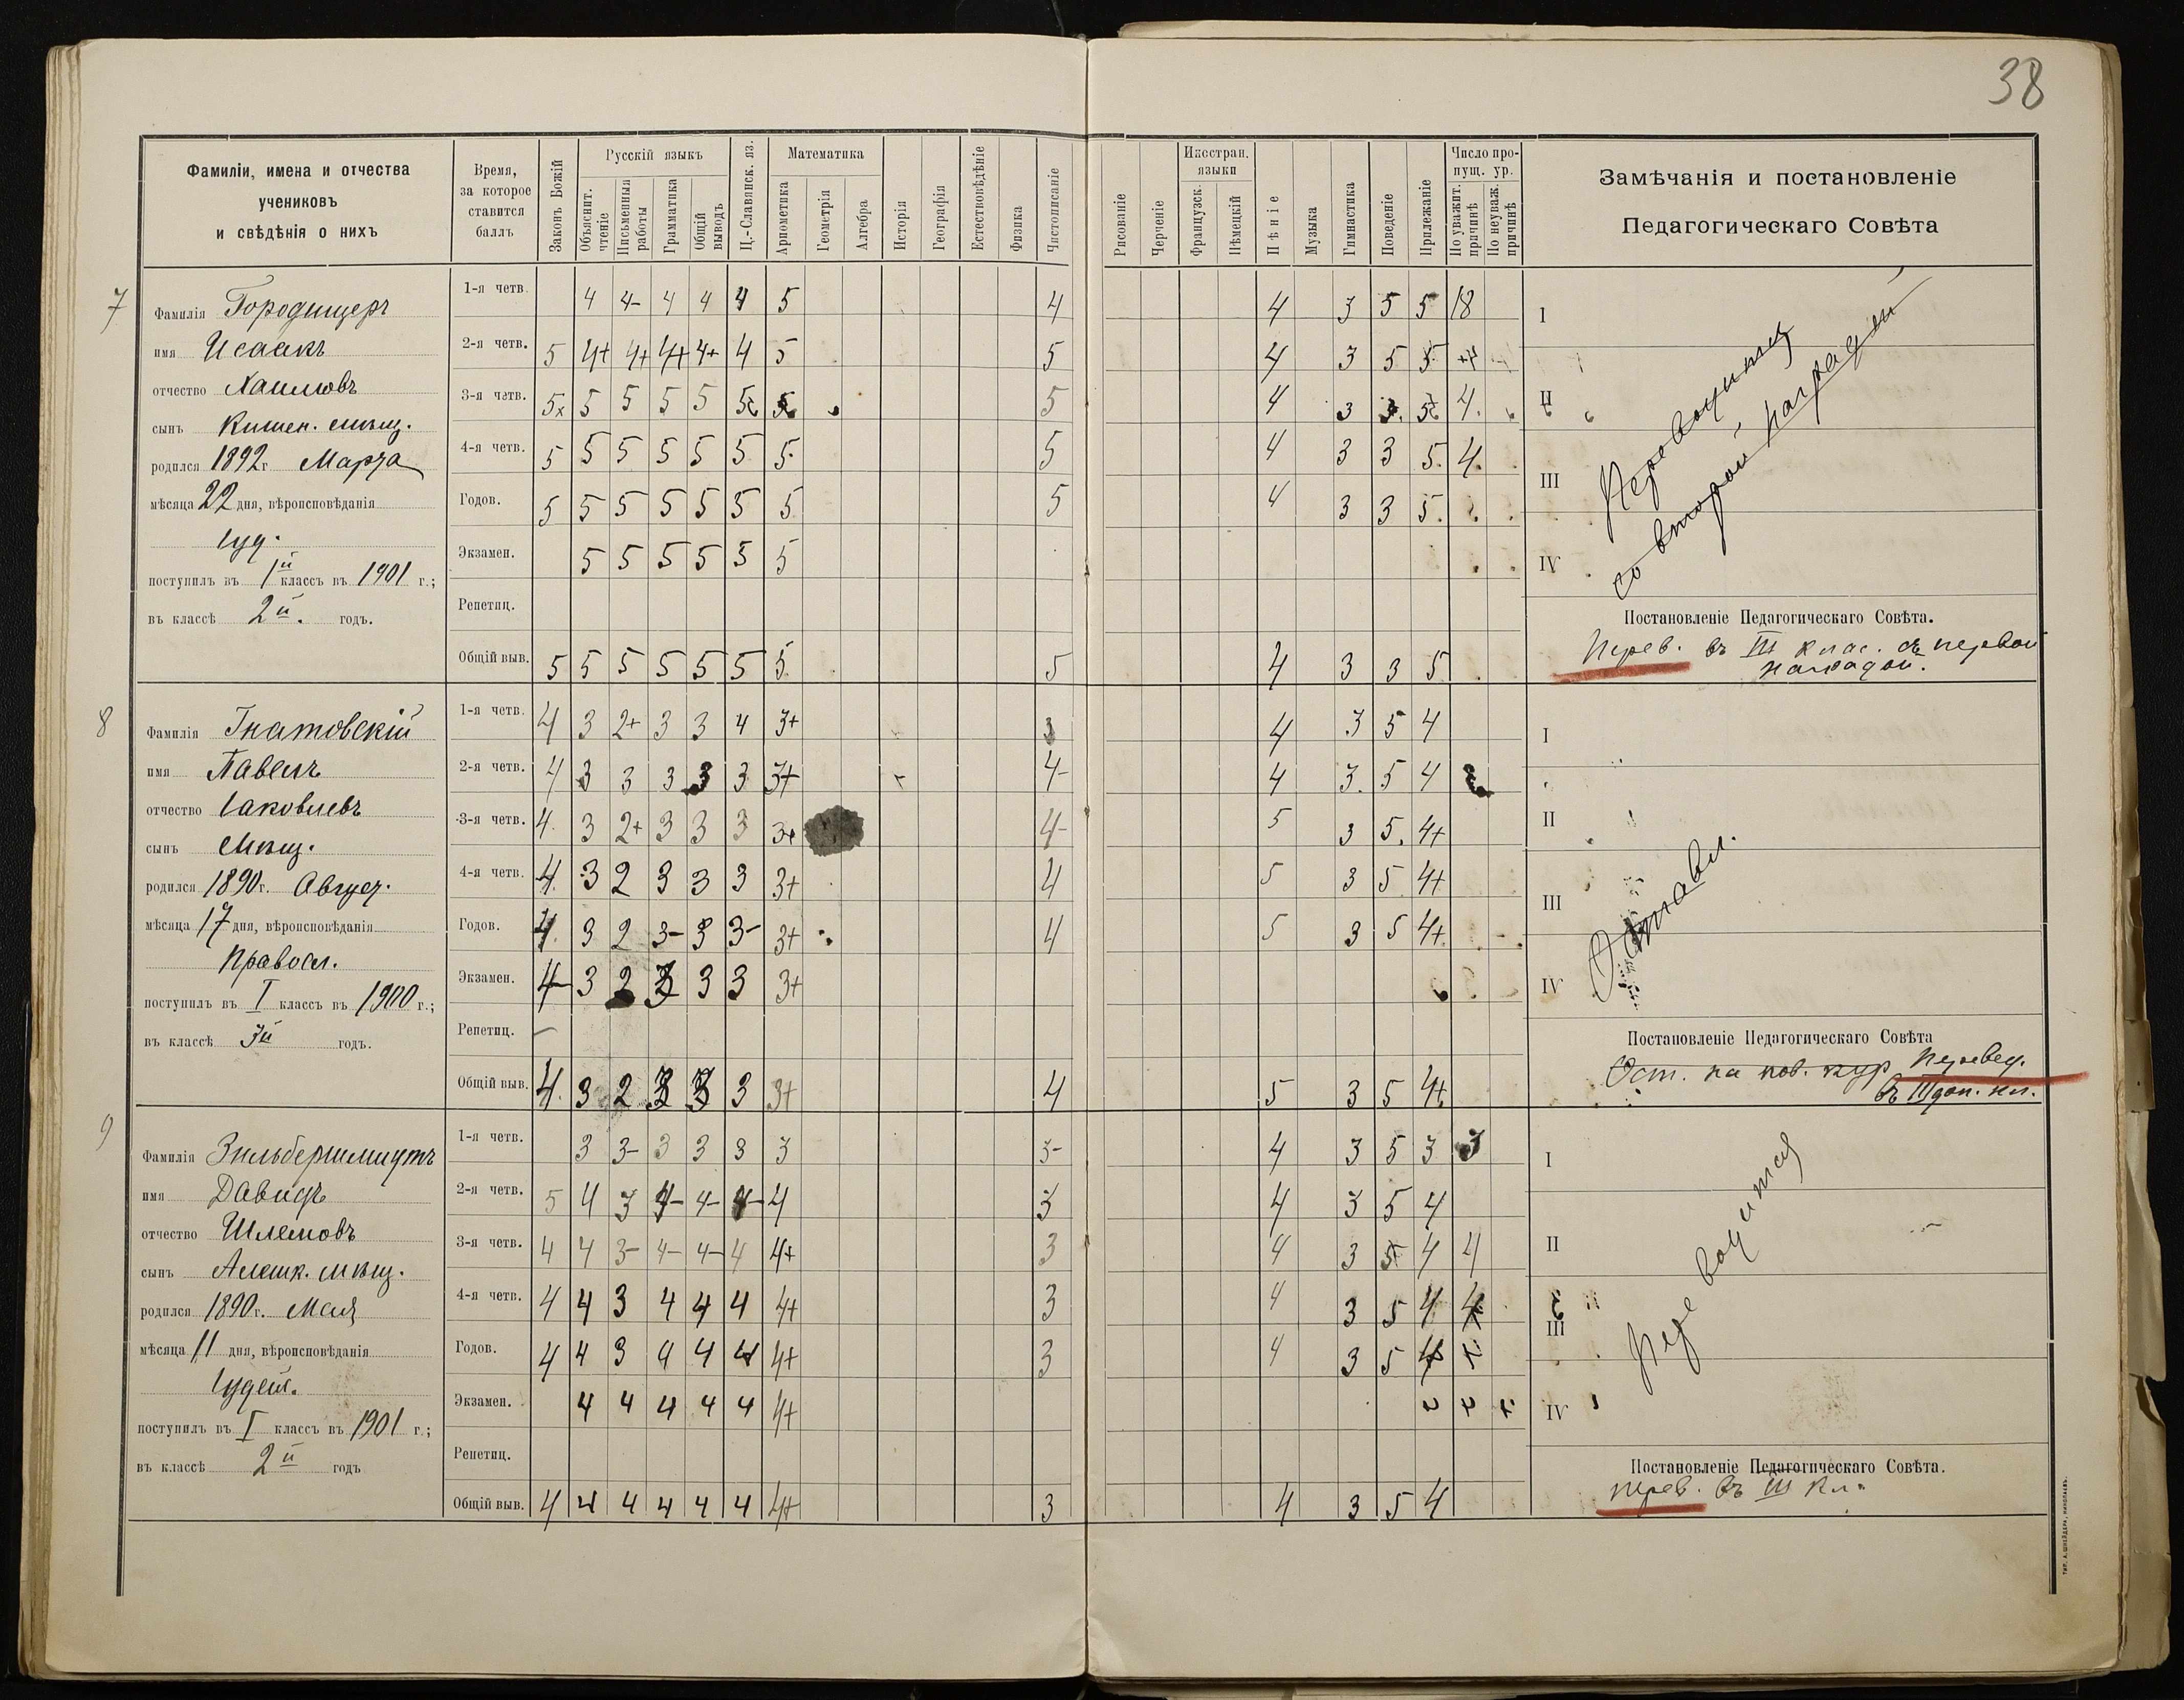 38
Фамиліи, имена и отчества
учениковъ
и свѣдѣнія о нихъ
Время,
за которое
ставится
баллъ
Законъ Божій
Русскій языкъ
Объяснит. чтеніе
Письменныя работы
Грамматика
Общій выводъ
Ц.-Славянск. яз.
Математика
Ариѳметика
Геометрія
Алгебра
Исторія
Географія
Естествовѣдѣніе
Физика
Чистописаніе
Рисованіе
Черченіе
Иностран. языки
Французск.
Нѣмецкій
Пѣніе
Музыка
Гимнастика
Поведеніе
Прилежаніе
Число пропущ. ур.
По уважит. причинѣ
По неуваж. причинѣ
Замѣчанія и постановленіе
Педагогическаго Совѣта
7
Фамилія Городищеръ
имя Исаакъ
отчество Хаимовъ
сынъ Кишен. мѣщ.
родился 1892 г. Марта
мѣсяца 22 дня, вѣроисповѣданія
Іуд.
поступилъ въ 1й классъ въ 1901 г.;
въ классѣ 2й. годъ.
1-я четв. 4 4- 4 4 4 5 4 4 3 5 5 18
2-я четв. 5 4+ 4+ 4+ 4+ 4 5 5 4 3 5 5
3-я четв. 5 5 5 5 5 5 5 5 4 3 5 4
4-я четв. 5 5 5 5 5 5 5 5 4 3 3 5 4
Годов. 5 5 5 5 5 5 5 5 4 3 3 5
Экзамен. 5 5 5 5 5 5
Репетиц.
Общій выв. 5 5 5 5 5 5 5 5 4 3 3 5
I
II
III
IV
Переводится
со второй наградой
Постановленіе Педагогическаго Совѣта.
Перев. въ III клас. съ первой
наградой.
8
Фамилія Гнатовскій
имя Павелъ
отчество Іаковлевъ
сынъ Мѣщ.
родился 1890 г. Август.
мѣсяца 17 дня, вѣроисповѣданія
Правосл.
поступилъ въ I классъ въ 1900 г.;
въ классѣ 3й годъ.
1-я четв. 4 3 2+ 3 3 4 3+ 3 4 3 5 4
2-я четв. 4 3 3 3 3 3 3+ 4- 4 3 5 4
3-я четв. 4 3 2+ 3 3 3 3+ 4- 5 3 5 4+
4-я четв. 4 3 2 3 3 3 3+ 4 5 3 5 4+
Годов. 4 3 2 3- 3 3- 3+ 4 5 3 5 4+
Экзамен. 4 3 2 3 3 3 3+
Репетиц. —
Общій выв. 4 3 2 3 3 3 3+ 4 5 3 5 4+
I
II
III
IV
Оставл.
Постановленіе Педагогическаго Совѣта
Ост. на пов. кур Перевед.
въ III доп. кл.
9
Фамилія Зильбершмидтъ
имя Давидъ
отчество Шлемовъ
сынъ Алешк. мѣщ.
родился 1890 г. Мая
мѣсяца 11 дня, вѣроисповѣданія
Іудей.
поступилъ въ I классъ въ 1901 г.;
въ классѣ 2й годъ
1-я четв. 3 3- 3 3 3 3 3- 4 3 5 3 3
2-я четв. 5 4 3 4- 4- 4- 4 3 4 3 5 4
3-я четв. 4 4 3- 4- 4- 4 4+ 3 4 3 5 4 4
4-я четв. 4 4 3 4 4 4 4+ 3 4 3 5 4 4
Годов. 4 4 3 4 4 4 4+ 3 4 3 5 4
Экзамен. 4 4 4 4 4 4+
Репетиц.
Общій выв. 4 4 4 4 4 4 4+ 3 4 3 5 4
I
II
III
IV
Переводится
Постановленіе Педагогическаго Совѣта.
перев. въ III кл.
ТИП. А. ШНЕЙДЕРА, НИКОЛАЕВЪ.